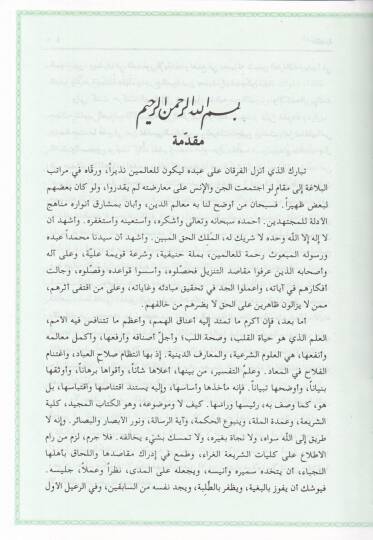 بسم الله الرحمن الرحيم
مقدّمة
تبارك الذي أنزل الفرقان على عبده ليكون للعالمين نذيراً، ورقّاه في مراتب
البلاغة إلى مقام لو اجتمعت الجن والإنس على معارضته لم يقدروا، ولو كان بعضهم
لبعض ظهيراً. فسبحان من أوضح لنا به معالم الدين، وأبان بمشارق أنواره مناهج
الأدلة للمجتهدين. أحمده سبحانه وتعالى وأشكره، وأستعينه وأستغفره. وأشهد أن
لا إله إلا الله وحده لا شريك له، المَلك الحق المبين. وأشهد أن سيدنا محمداً عبده
ورسوله المبعوث رحمة للعالمين، بملة حنيفية، وشرعة قويمة عليّة، وعلى آله
وأصحابه الذين عرفوا مقاصد التنزيل فحصلوه، وأسسوا قواعده وفصّلوه، وجالت
أفكارهم في آياته، وأعملوا الجد في تحقيق مبادئه وغاياته، وعلى من اقتفى أثرهم،
ممن لا يزالون ظاهرين على الحق لا يضرهم من خالفهم.
أما بعد، فإن أكرم ما تمتد إليه أعناق الهمم، وأعظم ما تتنافس فيه الأمم،
العلم الذي هو حياة القلب، وصحة اللب؛ وأجلّ أصنافه وأرفعها، وأكمل معالمه
وأنفعها، هي العلوم الشرعية، والمعارف الدينية. إذ بها انتظام صلاح العباد، واغتنام
الفلاح في المعاد. وعلم التفسير، من بينها، أعلاها شأناً، وأقواها برهاناً، وأوثقها
بنياناً، وأوضحها تبياناً. فإنه مأخذها وأساسها، وإليه يستند اقتناصها واقتباسها، بل
هو، كما وصف به، رئيسها وراسها. كيف لا وموضوعه، وهو الكتاب المجيد، كلية
الشريعة، وعمدة الملة، وينبوع الحكمة، وآية الرسالة، ونور الأبصار والبصائر. وإنه لا
طريق إلى الله سواه، ولا نجاة بغيره، ولا تمسك بشيء يخالفه. فلا جرم، لزم من رام
الاطلاع على كليات الشريعة الغراء، وطمع في إدراك مقاصدها واللحاق بأهلها
النجباء، أن يتخذه سميره وأنيسه، ويجعله على المدى، نظراً وعملاً، جليسه.
فيوشك أن يفوز بالبغية، ويظفر بالطِّلبة، ويجد نفسه من السابقين، وفي الرعيل الأول